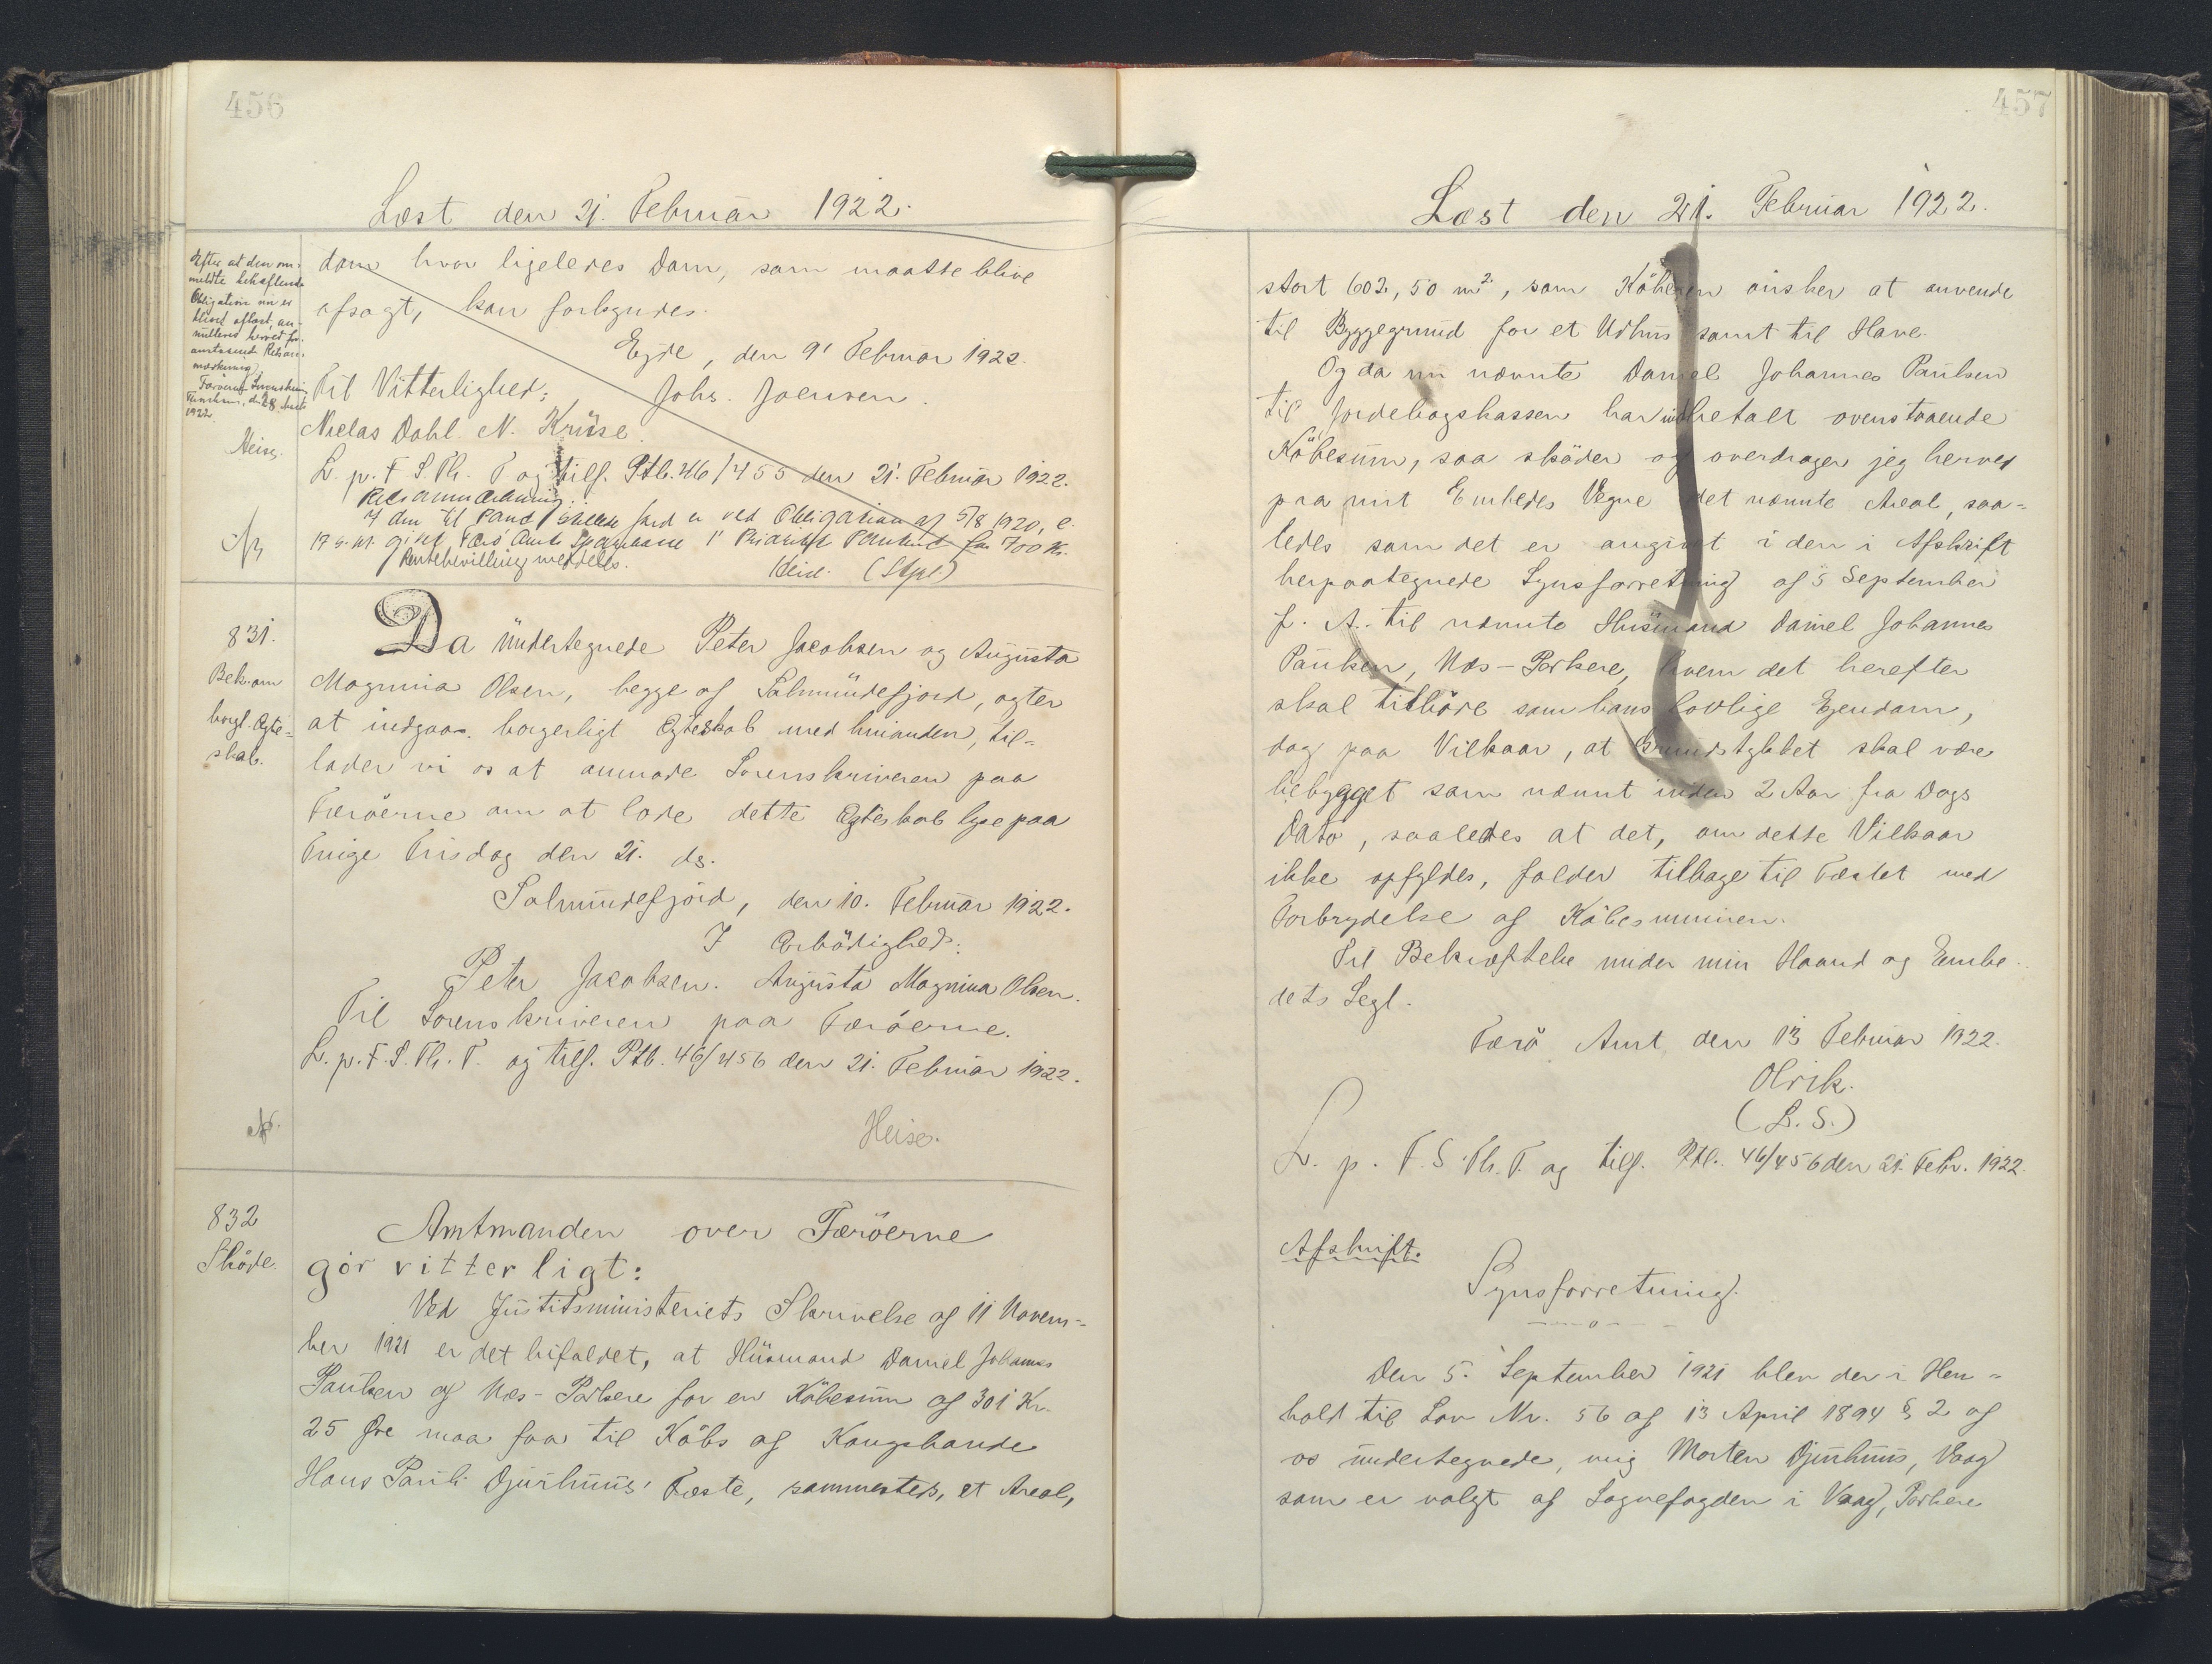 456
Læst den 21. Februar 1922.
Efter at den om-
meldte behæftende
Obligation nu er
bleven aflyst, an-
nulleres herved for-
anstaaende Retsan-
mærkning.
Færöernes Sorenskriveri,
Thorshavn, d. 28 Marts
1922.
Heise.
dom hvor ligeledes Dom, som maatte blive
afsagt, kan forkyndes.
Ejde, den 9' Februar 1922.
Til Vitterlighed: Johs. Joensen.
Niclas Dahl. N. Krüse.
L. p. F. S. Th. T og tilf. Ptb. 46/455 den 21' Februar 1922.
Retsanmærkning:
I den til Pant stillede Jord er ved Obligation af 5/8 1920, l.
17 s. M. givet Færö Amts Sparekasse 1' Prioritets Panteret for 700 Kr.
Pantebevilling meddeles. Heise. (Stpl.)
831.
Bek. om
borgl. Ægte-
skab.
Da undertegnede Peter Jacobsen og Augusta
Magnina Olsen, begge af Salmundefjord, agter
at indgaa borgerligt Ægteskab med hinanden, til-
lader vi os at anmode Sorenskriveren paa
Færöerne om at lade dette Ægteskab lyse paa
Tinge Tirsdag den 21. ds.
Salmundefjord, den 10. Februar 1922.
I Ærbödighed:
Peter Jacobsen. Augusta Magnina Olsen.
Til Sorenskriveren paa Færöerne.
L. p. F. S. Th. T. og tilf. Ptb. 46/456 den 21. Februar 1922.
Heise.
832
Sköde.
Amtmanden over Færöerne
gör vitterligt:
Ved Justitsministeriets Skrivelse af 11 Novem-
ber 1921 er det bifaldet, at Husmand Daniel Johannes
Paulsen af Næs-Porkere for en Köbesum af 301 Kr.
25 Øre maa faa til Köbs af Kongsbonde
Hans Pauli Djurhuus' Fæste, sammesteds, et Areal,
457
Læst den 21. Februar 1922.
stort 602,50 m², som Köberen önsker at anvende
til Byggegrund for et Udhus samt til Have.
Og da nu nævnte Daniel Johannes Paulsen
til Jordebogskassen har indbetalt ovenstaaende
Köbesum, saa sköder og overdrager jeg herved
paa mit Embedes Vegne det nævnte Areal, saa-
ledes som det er angivet i den i Afskrift
herpaategnede Synsforretning af 5 September
f. A. til nævnte Husmand Daniel Johannes
Paulsen, Næs-Porkere, hvem det herefter
skal tilhöre som hans lovlige Ejendom,
dog paa Vilkaar, at Grundstykket skal være
bebygget som nævnt inden 2 Aar fra Dags
Dato, saaledes at det, om dette Vilkaar
ikke opfyldes, falder tilbage til Fæstet med
Forbrydelse af Köbesummen.
Til Bekræftelse under min Haand og Embe-
dets Segl.
Færö Amt den 13 Februar 1922.
Olrik.
(L. S.)
L. p. F. S. Th. T. og tilf. Ptb. 46/456 den 21. Febr. 1922.
Afskrift.
Synsforretning.
Den 5. September 1921 blev der i Hen-
hold til Lov Nr. 56 af 13 April 1894 § 2 af
os undertegnede, mig Morten Djurhuus, Vaag
som er valgt af Sognefogden i Vaag, Porkere